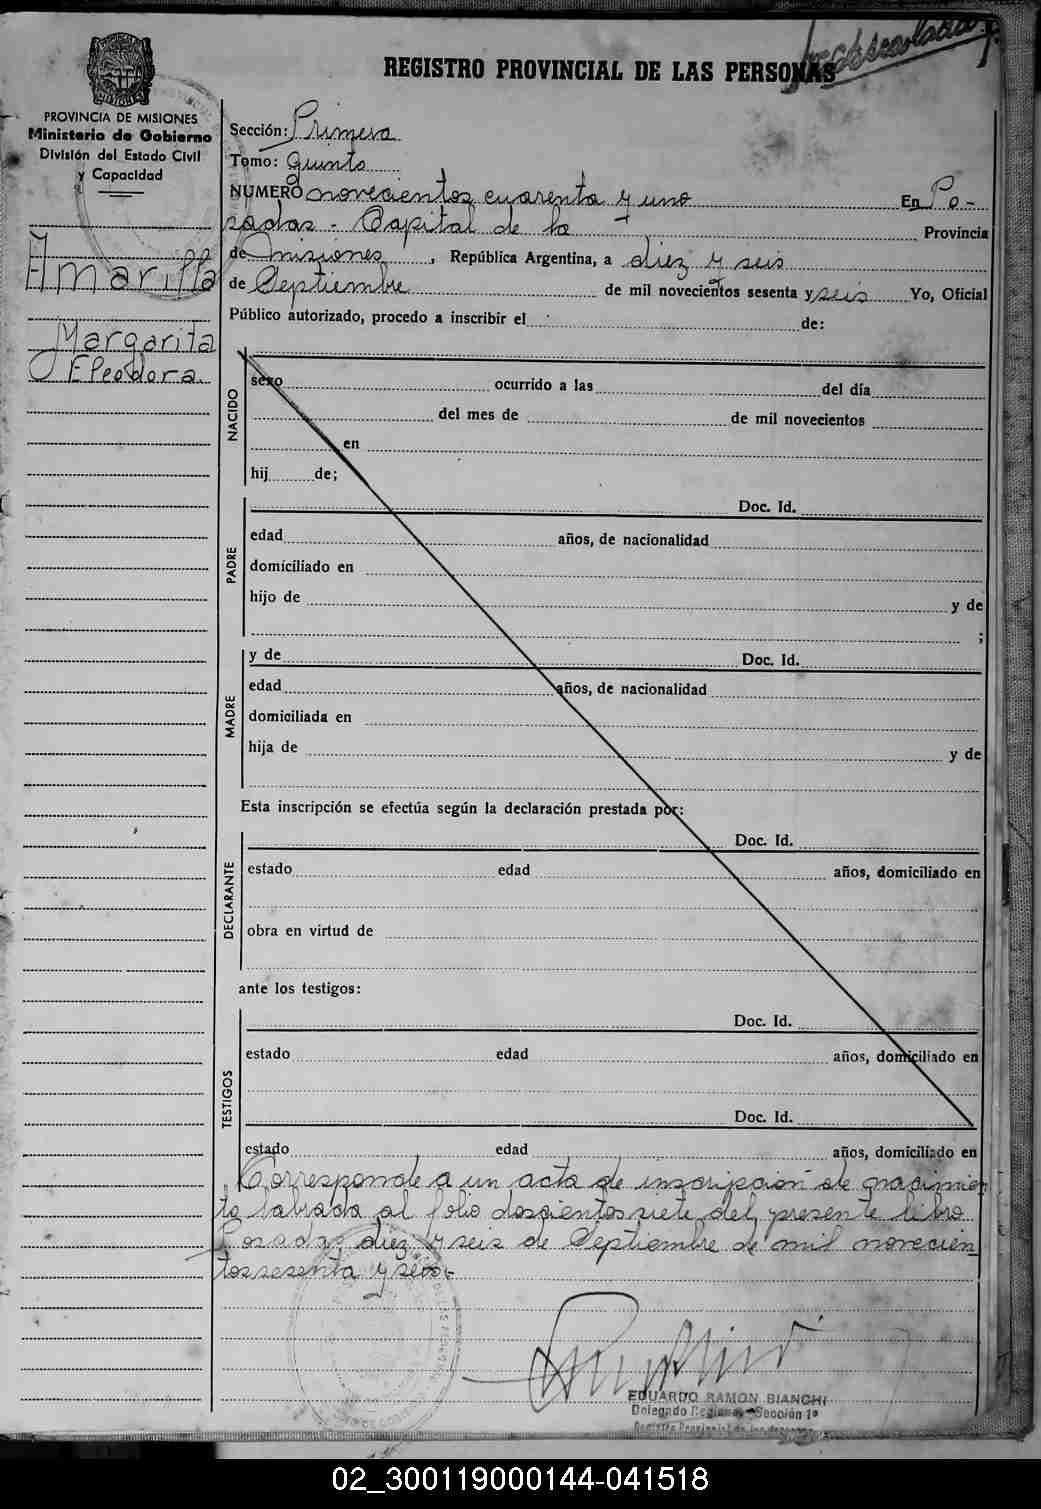 REGISTRO PROVINCIAL DE LAS PERSONAS
PROVINCIA DE MISIONES
Ministerio de Gobierno
División del Estado Civil
y Capacidad
Amarilla
Margarita
Eleodora
Sección: Primera
Tomo: Quinto
NUMERO novecientos cuarenta y uno En Po-
sadas - Capital de la Provincia
de Misiones, República Argentina, a diez y seis
de Septiembre de mil novecientos sesenta y seis Yo, Oficial
Público autorizado, procedo a inscribir el de:
NACIDO
sexo ocurrido a las del día
del mes de de mil novecientos
en
hij de;
PADRE
Doc. Id.
edad años, de nacionalidad
domiciliado en
hijo de y de
;
MADRE
y de Doc. Id.
edad años, de nacionalidad
domiciliada en
hija de y de
Esta inscripción se efectúa según la declaración prestada por:
DECLARANTE
Doc. Id.
estado edad años, domiciliado en
obra en virtud de
ante los testigos:
TESTIGOS
Doc. Id.
estado edad años, domiciliado en
Doc. Id.
estado edad años, domiciliado en
Corresponde a un acta de inscripción de nacimien
to labrada al folio doscientos siete del presente libro
Posadas, diez y seis de Septiembre de mil novecien
tos sesenta y seis.-
EDUARDO RAMON BIANCHI
Delegado Regional - Sección 1ª
Registro Provincial de las Personas
02_300119000144-041518